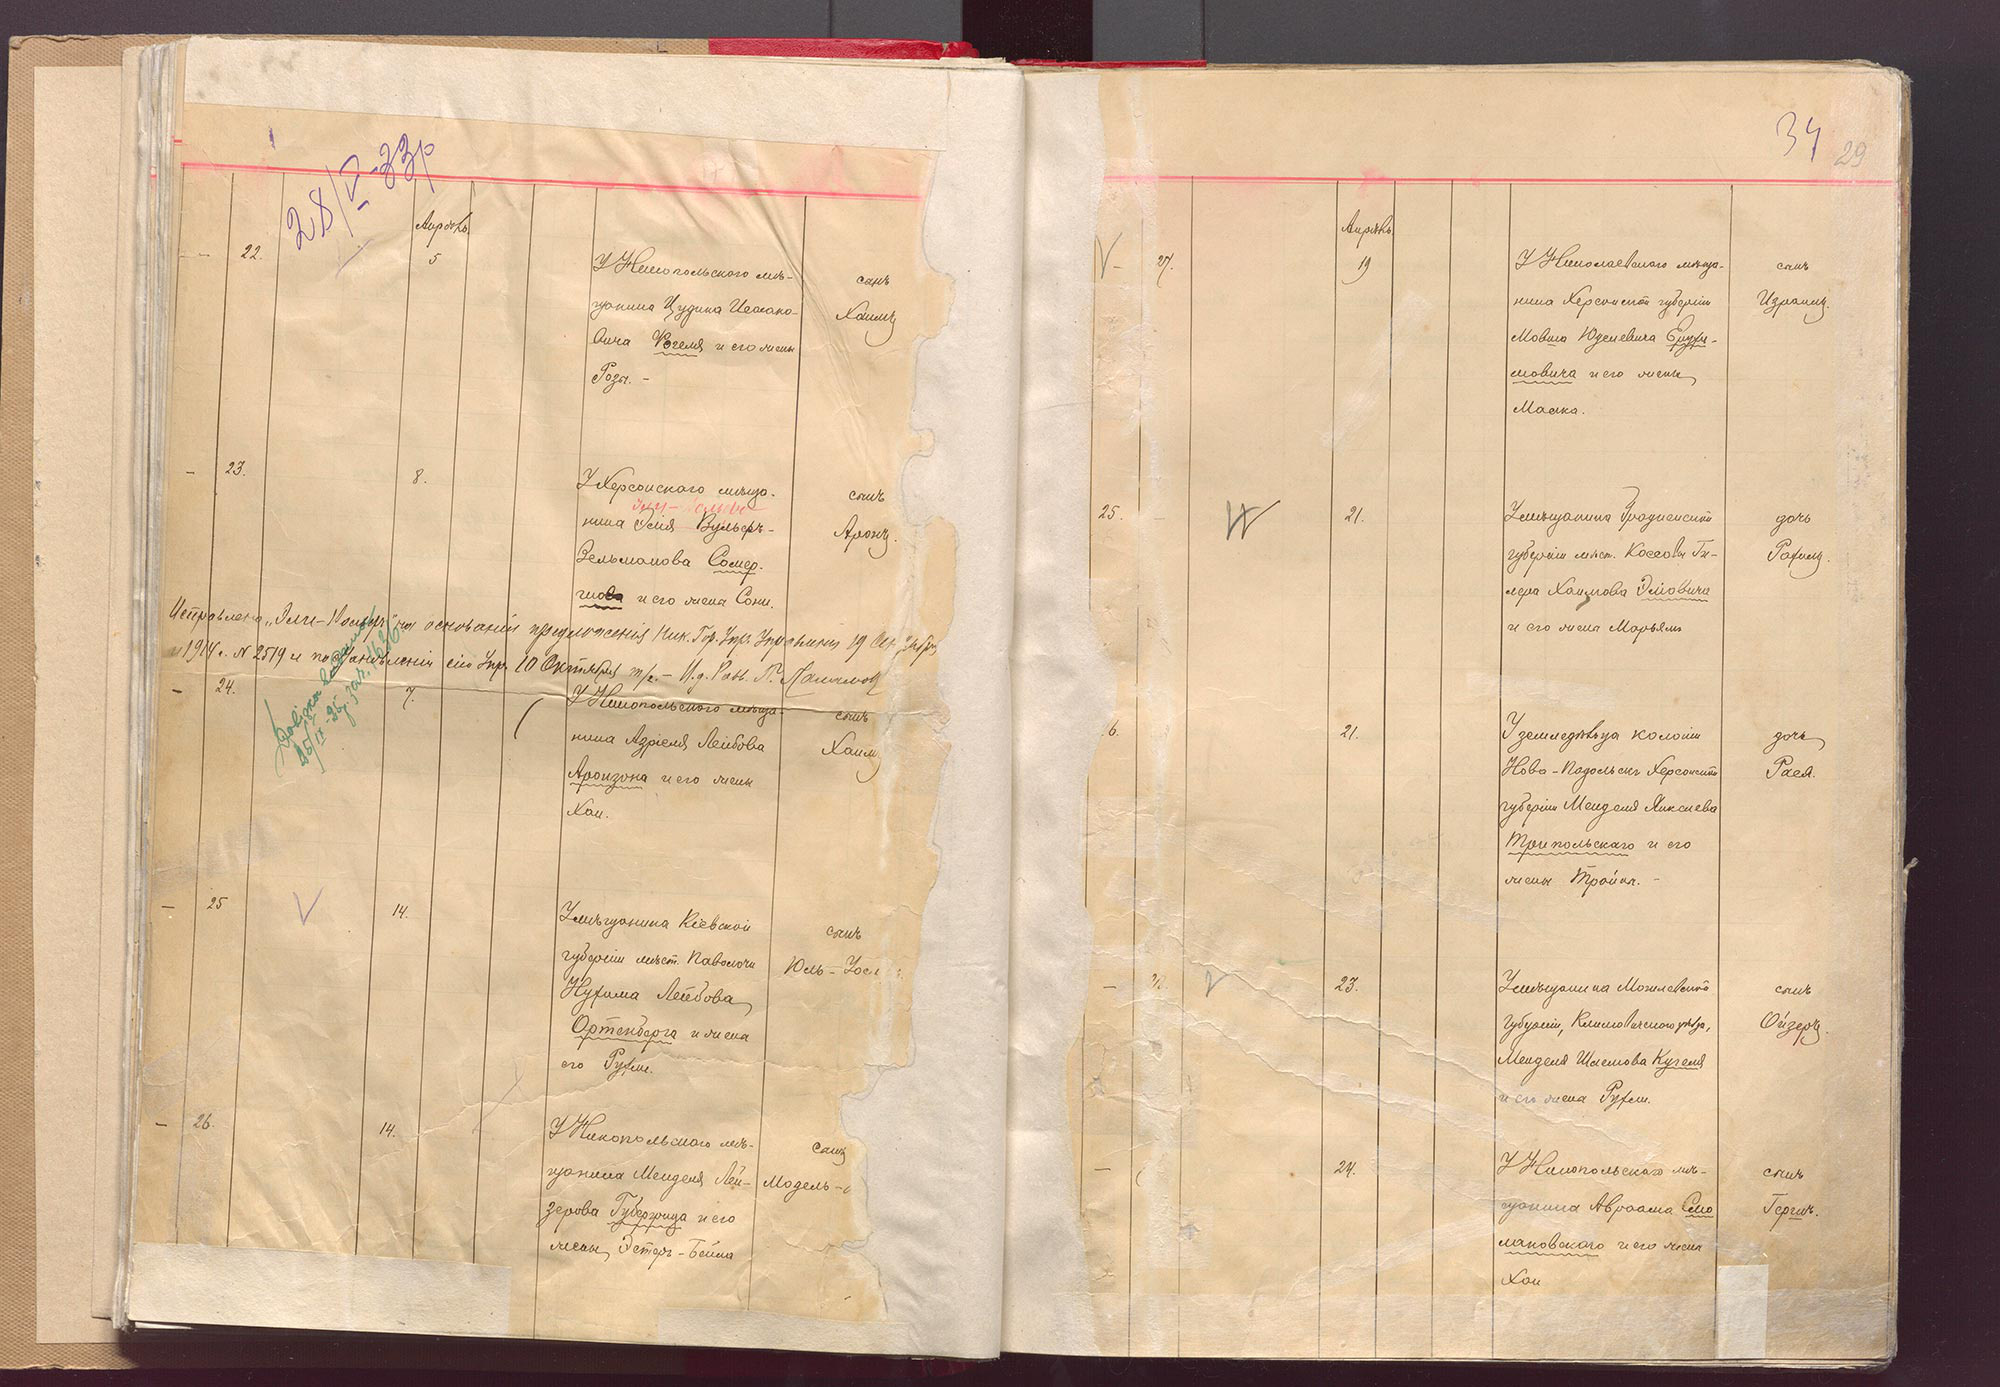 28/V-33р
Апрѣль
22.
5
У Никопольского мѣ-
щанина Цудика Исаако-
вича Фогеля и его жены
Розы. -
сынъ
Хаимъ
23.
8.
У Херсонского мѣща-
нина Элія Вульфъ-
Зельманова Сомер-
и его жена Сони.
сынъ
Аронъ.
Исправлено „Эли-Вольфъ" на основаніи предложенія Ник. Гор. Упр. 19
1914 г. № 2519 и постановленія сію Упр. 10 Октября т/г. - И.д. Равв.
24.
7.
У Никопольского мѣща-
нина Азріеля Лейбова
Аронзона и его жены
Хаи.
сынъ
Хаим
25
14.
У мѣщанина Кіевской
губерніи мѣст. Паволочи
Нухима Лейбова
Ортенберга и жена
его Рухли.
сынъ
Юль-
26.
14.
У Никопольского мѣ-
щанина Менделя Лей-
зерова и его
жены Эстеръ-Бейла
сынъ
Модель-
34
29
Апрѣль
27.
19
У Николаевского мѣща-
нина Херсонской губерніи
Мовша Юделевича Ерухи-
мовича и его жены
Малка.
сынъ
Израиль.
25.
21.
У мѣщанина Гродненской
губерніи мѣст. Коссовы Ги-
лера Хаимова Эмовича
и его жена Марьямъ
дочь
Рахиль.
6.
21.
У земледѣльца колоніи
Ново-Подольскъ Херсонской
губерніи Менделя
Трипольскаго и его
жены Тройна. -
дочь
Рася.
23.
У мѣщанина Могилевской
губерніи, Климовичского уѣзда,
Менделя Шаемова Кугеля
и его жена Рухли.
сынъ
Ойзеръ.
24.
У Никопольского мѣ-
щанина Авраама Смо
ляновского и его жена
Хаи
сынъ
Гершъ.